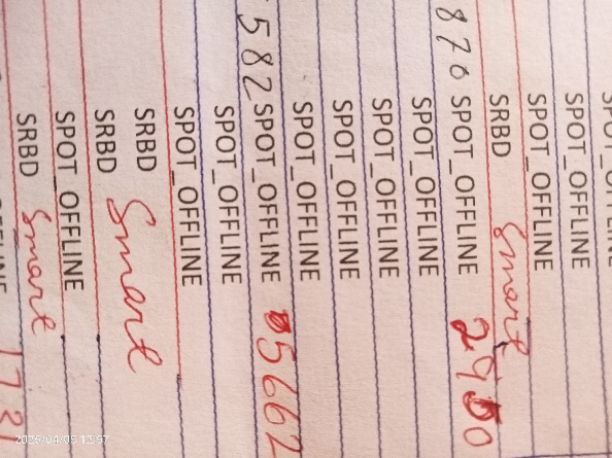 SPOT_OFFLINE
SPOT_OFFLINE
SRBD Smart
870 SPOT_OFFLINE
SPOT_OFFLINE
SPOT_OFFLINE
SPOT_OFFLINE
SPOT_OFFLINE
582 SPOT_OFFLINE 5662
SPOT_OFFLINE
SPOT_OFFLINE
SRBD Smart
SRBD
SPOT_OFFLINE
SRBD Smart 1731